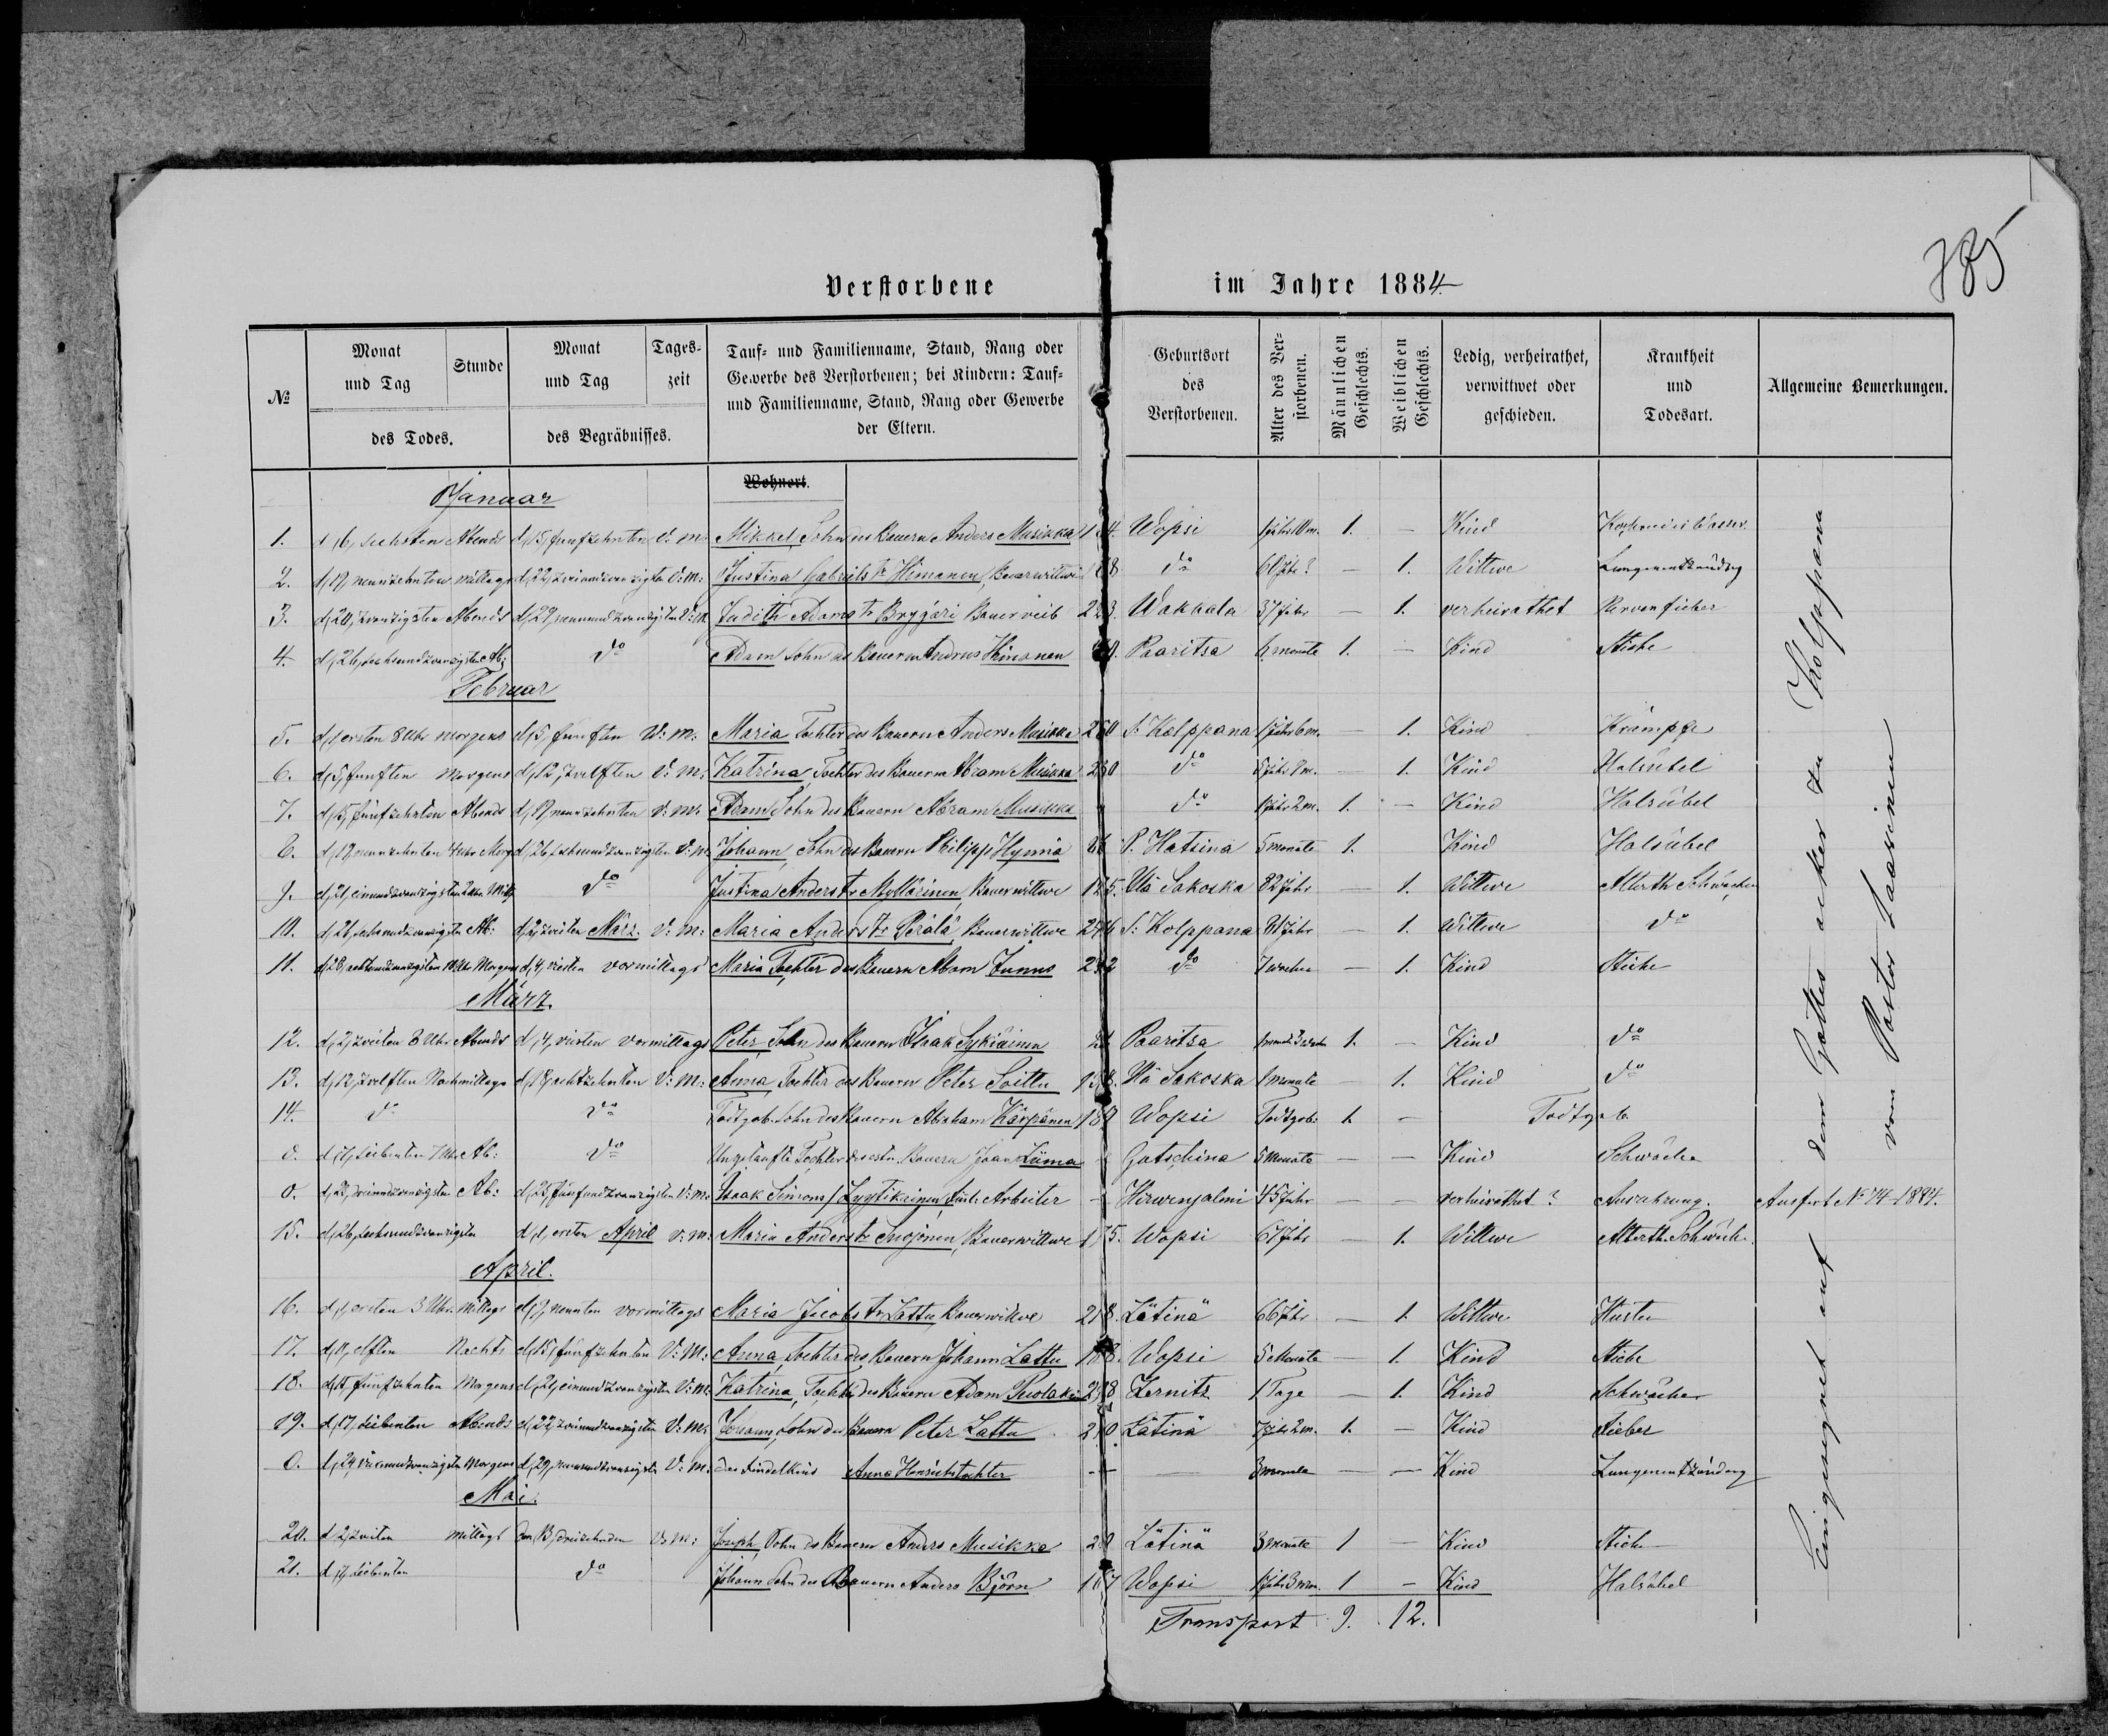 785
Verstorbene im Jahre 1884
№ Monat und Tag Stunde des Todes. Monat und Tag Tageszeit des Begräbnisses. Tauf- und Familienname, Stand, Rang oder Gewerbe des Verstorbenen; bei Kindern: Tauf- und Familienname, Stand, Rang oder Gewerbe der Eltern. Geburtsort des Verstorbenen. Alter des Verstorbenen. Männlichen Geschlechts. Weiblichen Geschlechts. Ledig, verheirathet, verwittwet oder geschieden. Krankheit und Todesart. Allgemeine Bemerkungen.
Wohnort.
Januar
1. d, 6, sechsten Abends d, 15, funfzehnten V: M: Mikkel, Sohn des Bauern Anders Musikka Wopsi 1. – Kind
2. d, 19, neunzehnten Mittags d, 22, zweiundzwanzigsten V: M: Justina Gabriels tr Himonen, Bauerwittwe do – 1. Wittwe Lungenentzündung
3. d, 20, zwanzigsten Abends d, 29, neunundzwanzigsten V: M. Judith Adams tr Bauerweib Wakkala 37 Jahr – 1. verheirathet Nervenfieber
4. d, 26, sechsundzwanzigsten Ab: do Adam Sohn des Bauern Andreas Himonen Paaritsa 1. – Kind Stiche
Februar
5. d, 1, ersten 8 Uhr morgens d, 5, funften V: M: Maria Tochter des Bauern Anders Musikka 260 S. Kolppana 1 Jahr 6 m. – 1. Kind Krämpfe
6. d, 5, funften Morgens d, 12, zwelften V: M: Katrina, Tochter des Bauern Abram Musikka do – 1. Kind Halsübel
7. d, 15, funfzehnten Abends d, 19, neunzehnten V: M: Adam Sohn des Bauern Abram Musikka do 1 Jahr 2 m. 1. – Kind Halsübel
8. d, 19, neunzehnten 4 Uhr Morg d, 26, sechsundzwanzigsten V: M: Johann, Sohn des Bauern Philipp Hynnä P. Hatsina 5 monate 1. Kind Halsübel
9. d, 21, einundzwanzigsten do Justina Anders tr Myllärinen, Bauerwittwe Sakoska 82 Jahr – 1. Wittwe Alterth. Schwäche
10. d, 26, sechsundzwanzigsten Ab: d, 2, zweiten März. V: M: Maria Anders tr Perälä, Bauerwittwe S. Kolppana – 1. Wittwe do
11. d, 28, achtundzwanzigsten 10 Uhr Morgens d, 4, vierten vormittags Maria Tochter des Bauern Adam Junno do 7 wochen – 1. Kind Stiche
März.
12. d, 2, zweiten 8 Uhr Abends d, 4, vierten vormittags Peter Sohn des Bauern Isaak Sykiäinen Paaritsa 1. – Kind do
13. d, 12, zwelften Nachmittags d, 18, achtzehnten V: M: Anna, Tochter des Bauern Peter Soittu Sakoska 1 monate – 1. Kind do
14. do do Todtgeb. Sohn des Bauern Abraham Kärpänen 189 Wopsi Todtgeb: 1. – Todtgeb.
o. d, 7, siebenten 7 Uhr Ab: do Ungetaufte Tochter des estn. Bauern Jaan Liima Gatschina 5 Monate – – Kind Schwäche
o. d, 23, dreiundzwanzigsten Ab: d, 25, funfundzwanzigsten V: M: Isaak Simons / Lyytikainen Arbeiter – Hirwenjalmi 45 Jahr – – verheirathet? Auszehrung. Ausfert № 74 1884.
15. d, 26, sechsundzwanzigsten d, 1, ersten April V: M: Maria Anders tr Suojonen, Bauerwittwe 175. Wopsi 67 Jahr – 1. Wittwe Alterth. Schwäche.
April.
16. d, 1, ersten 3 Uhr Mittags d, 9, neunten vormittags Maria Jacobs tr Lattu, Bauerwittwe 218. Lätinä 66 Jahr – 1. Wittwe Husten
17. d, 11, elften Nachts d, 15, funfzehnten V: M: Anna, Tochter des Bauern Johann Lattu Wopsi 5 Monate – 1. Kind Stiche
18. d, 15, funfzehnten Morgens d, 21, einundzwanzigsten V: M: Katrina, Tochter des Bauern Adam Zernits 1 Tage – 1. Kind Schwäche
19. d, 17, siebenten Abends d, 22, zweiundzwanzigsten V: M: Johann, Sohn des Bauern Peter Lattu 210. Lätinä 7 Jahr 2 m. 1. – Kind Fieber
o. d, 24, vierundzwanzigsten Morgens d, 29, neunundzwanzigsten V: M: Das Findelkind Anna Henriks tochter – – 3 monate – – Kind Lungenentzündung
Mai.
20. d, 2, zweiten Mittags den 13, dreizehnten V: M: Joseph, Sohn des Bauern Anders Musikka Lätinä 3 Monate 1 – Kind Stiche
21. d, 7, siebenten do Johann Sohn des Bauern Anders Björn Wopsi 1 – Kind Halsübel
Transport 9. 12.
Eingesegnet auf dem Gottes acker zu Kolppana
von Pastor Saarinen